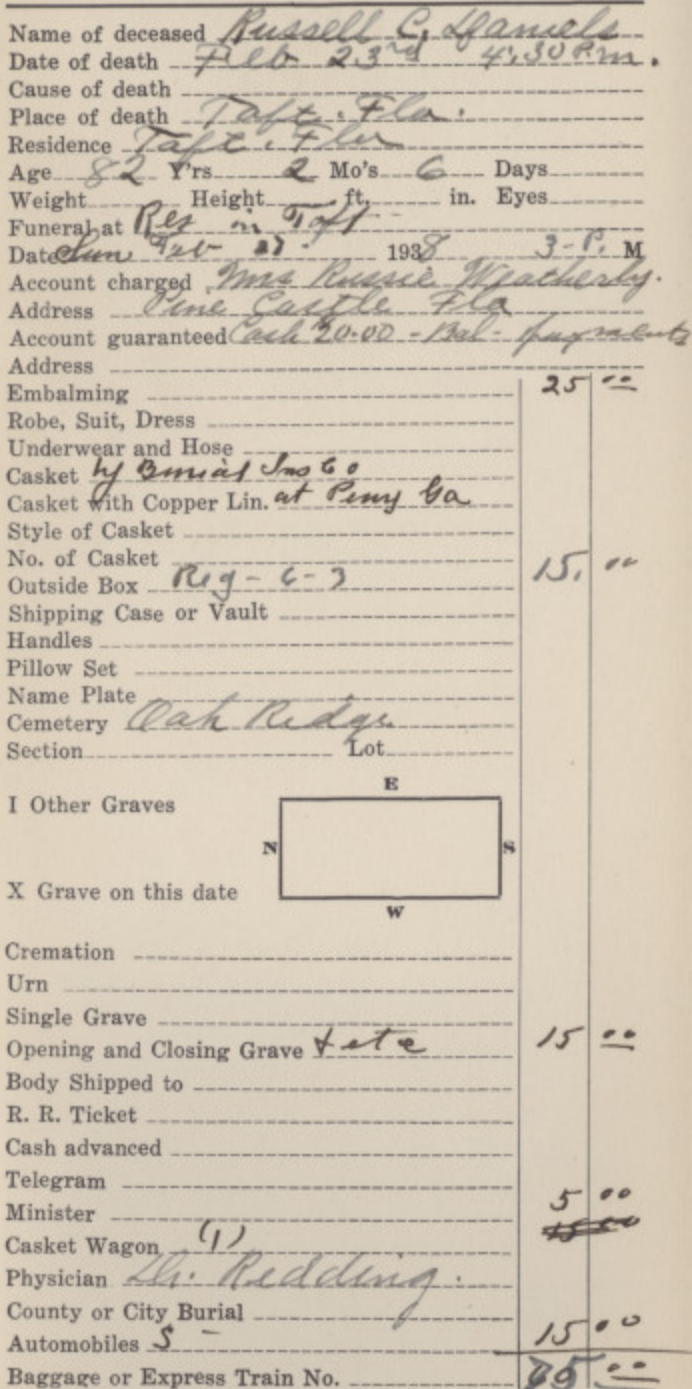 Name of deceased Russell C. Daniels
Date of death Feb 23rd 4:30 P.m.
Cause of death
Place of death Taft. Fla.
Residence Taft. Fla
Age 82 Y'rs 2 Mo's 6 Days
Weight Height ft. in. Eyes
Funeral at Res in Taft
Date Sun Feb 27 1938 3-P. M
Account charged Mrs Russie Weatherly.
Address Pine Castle Fla
Account guaranteed Cash 20.00 - Bal - payments
Address
Embalming 25 00
Robe, Suit, Dress
Underwear and Hose
Casket by Burial Ins Co
Casket with Copper Lin. at Perry Ga
Style of Casket
No. of Casket 15. 00
Outside Box Reg - 6-3
Shipping Case or Vault
Handles
Pillow Set
Name Plate
Cemetery Oak Ridge
Section Lot
E
I Other Graves
N S
X Grave on this date
W
Cremation
Urn
Single Grave
Opening and Closing Grave & etc 15 00
Body Shipped to
R. R. Ticket
Cash advanced
Telegram
Minister 5 00
Casket Wagon (1) 15 00
Physician Dr. Redding.
County or City Burial
Automobiles 5 - 15 00
Baggage or Express Train No. 00